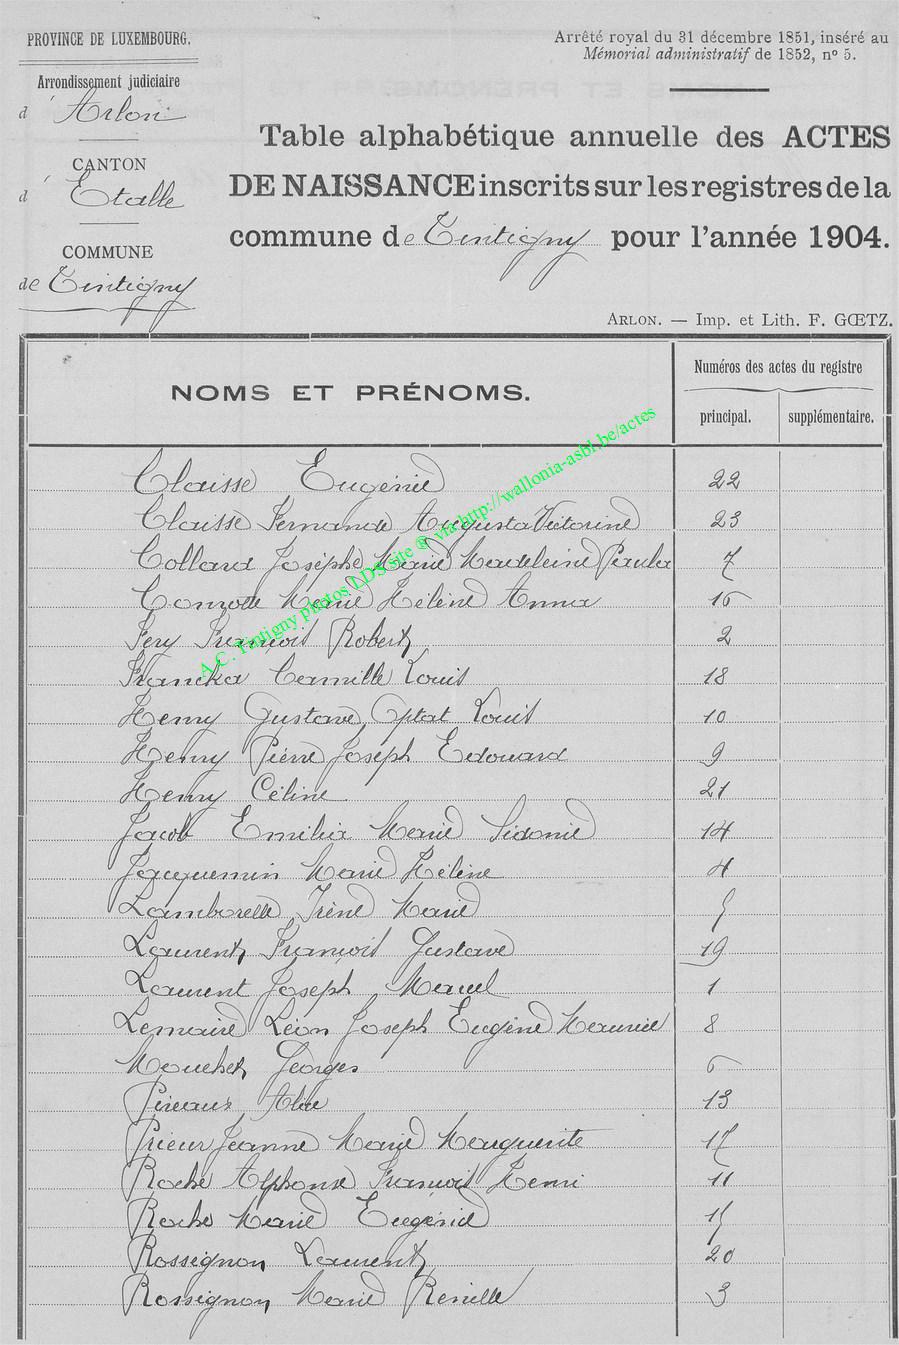 PROVINCE DE LUXEMBOURG.
Arrondissement judiciaire
d'Arlon
CANTON
d'Etalle
COMMUNE
de Tintigny
Arrêté royal du 31 décembre 1851, inséré au
Mémorial administratif de 1852, nº 5.
Table alphabétique annuelle des ACTES
DE NAISSANCE inscrits sur les registres de la
commune de Tintigny pour l'année 1904.
ARLON. — Imp. et Lith. F. GŒTZ.
NOMS ET PRÉNOMS.
Numéros des actes du registre
principal. supplémentaire.
A.C. Tintigny photos LDS site ® via http://wallonia-asbl.be/actes
Claisse Eugénie 22
Claisse Fernande Augusta Victorine 23
Collard Josèphe Marie Madeleine Paula 7
Marie Hélène Anna 16
Fery François Robert 2
Camille Louis 18
Henry Gustave, Optat Louis 10
Henry Pierre Joseph Edouard 9
Henry Céline 21
Jacob Emilia Marie Sidonie 14
Jacquemin Marie Hélène 4
Lamborelle Irène Marie 5
Laurent François Gustave 19
Laurent Joseph Marcel 1
Lemaire Léon Joseph Eugène Maurice 8
Mouchet Georges 6
Alice 13
Prieur Jeanne Marie Marguerite 17
Roche Alphonse François Henri 11
Roche Marie Eugénie 15
Rossignon Laurent 20
Rossignon Marie Renelle 3